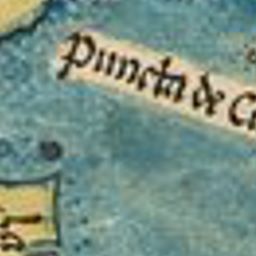 Puncta de